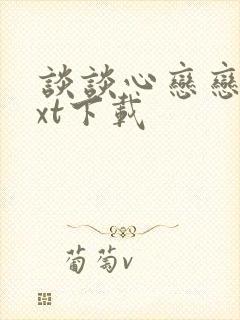 談談心戀戀
xt下載
葡萄v